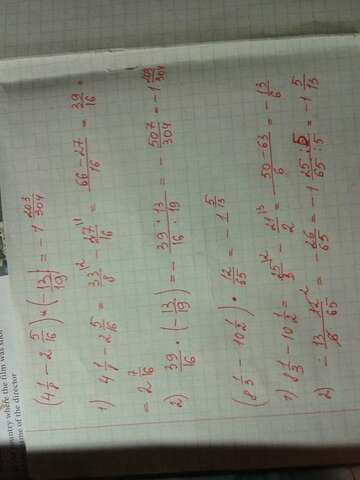 country where the film was shot
name of the director
(4 1/8 - 2 5/16) * (-13/19) = -1 203/304
1) 4 1/8 - 2 5/16 = 33/8 \2 - 37/16 \1 = 66-27/16 = 39/16 =
= 2 7/16
2) 39/16 · (-13/19) = - 39·13/16·19 = - 507/304 = -1 203/304
(8 1/3 - 10 1/2) · 12/65 = -1 5/13
1) 8 1/3 - 10 1/2 = 25/3 \2 - 21/2 \3 = 50-63/6 = - 13/6
2) - 13/6 · 12/65 2 = - 26/65 = -1 25:5/65:5 = -1 5/13